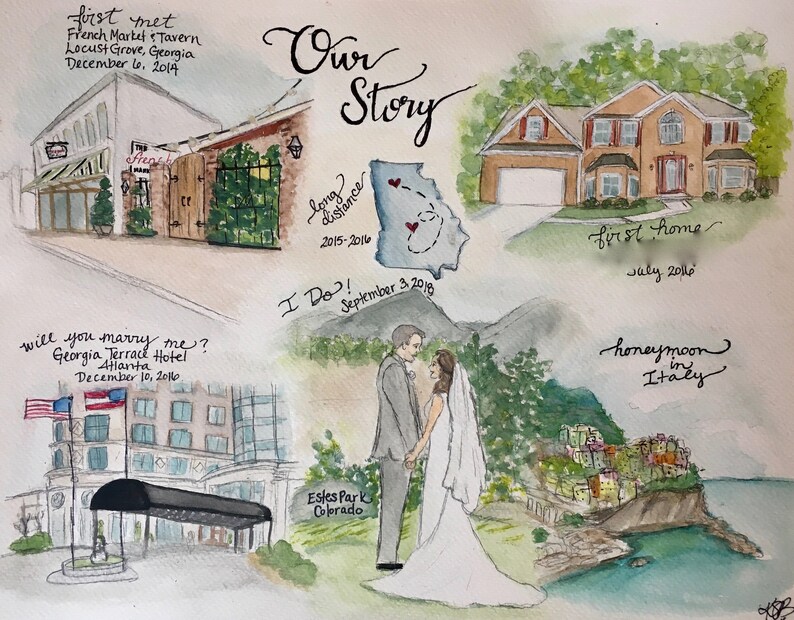 first met
French Market & Tavern
Locust Grove, Georgia
December 6, 2014
Our
Story
THE
French
MARK
long
distance
2015-2016
first home
July 2016
I Do!
September 3, 2018
will you marry me?
Georgia Terrace Hotel
Atlanta
December 10, 2016
Estes Park
Colorado
honeymoon
in
Italy
KSB